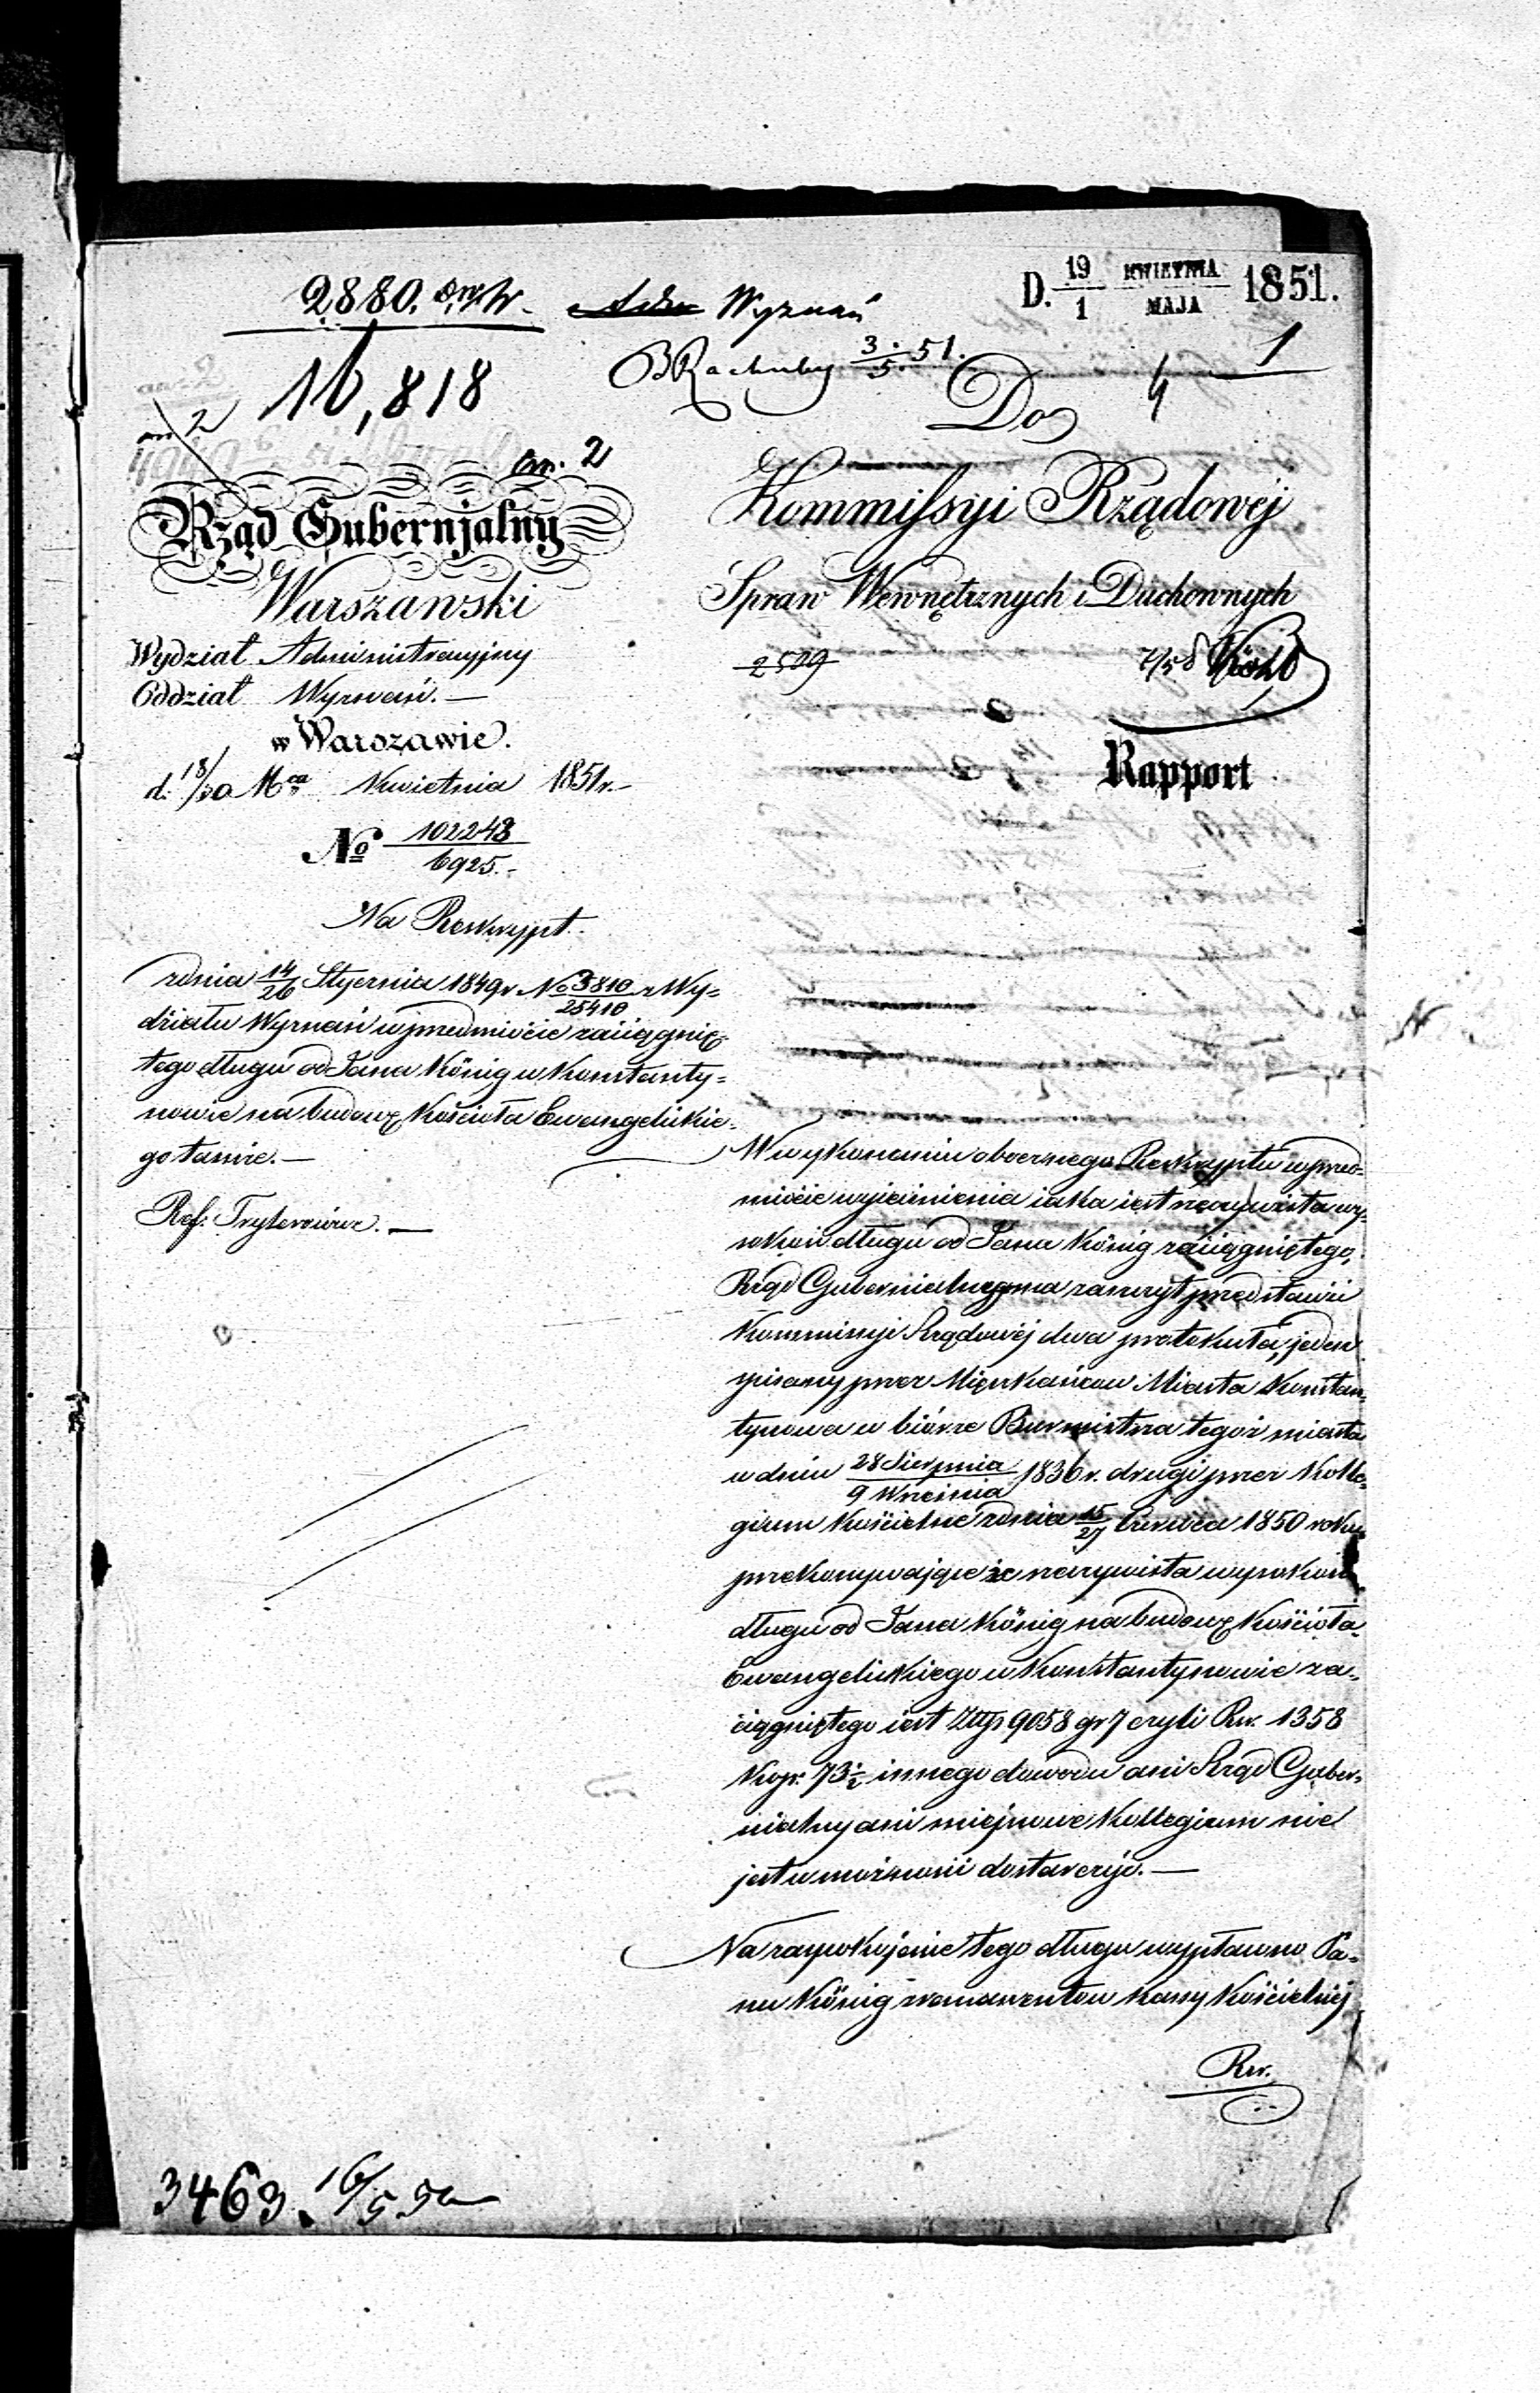 D. 19/1 KWIETNIA/MAJA 1851.
2880.
Wyznań
16,818
3/5 51.
1
4
2
Do
an. 2
Rząd Gubernjalny
Warszawski
Wydział Administracyjny
Oddział Wyznań. —
w Warszawie.
d. 18/30 Mca Kwietnia 1851 r. -
No 102248/6925. -
Na Reskrypt.
z dnia 14/26 Stycznia 1849 r No 3810/25410 z Wy=
działu Wyznań w przedmiocie zaciągnię-
tego długu od Jana König w Konstanty=
nowie na budowę Kościoła Ewangelickie-
go tamże. —
Ref:
Kommissyi Rządowéj
Spraw Wewnętrznych i Duchownych
2509
Rapport
W wykonaniu obocznego Reskryptu w przed-
miocie wyjaśnienia iaka iest rzeczywista wy-
sokość długu od Jana König zaciągniętego,
Rząd Gubernialny ma zaszczyt przedstawić
Kommissyi Rządowéj dwa protokuła, jeden
spisany przez Mieszkańców Miasta Konstan-
tynowa w biórze Burmistrza tegoż miasta
w dniu 28 Sierpnia/9 Września 1836 r. drugi przez Kolle-
gium Kościelne z dnia 15/27 Czerwca 1850 roku
przekonywające że rzeczywista wysokość
długu od Jana König na budowę Kościoła
Ewangelickiego w Konstantynowie za-
ciągniętego iest Złtp 9058 gr 7 czyli Rsr. 1358
Kop. 73½ innego dowodu ani Rząd Guber-
nialny ani miejscowe Kollegium nie
jest w możności dostarczyć. —
Na zaspokojenie tego długu wypłacono Pa-
nu König z remanentów kassy Kościelnéj
Rsr.
3463. 16/5